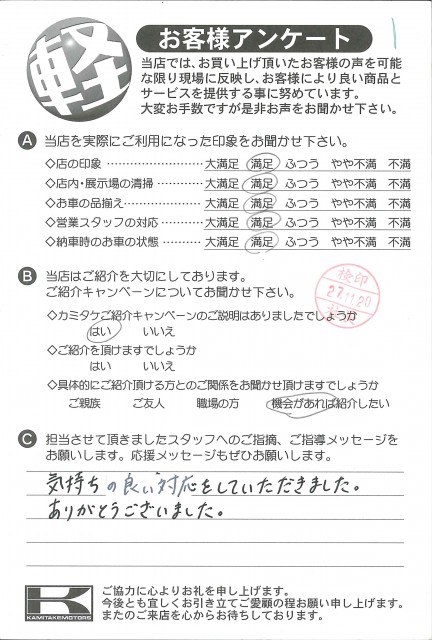 軽
お客様アンケート
1
当店では、お買い上げ頂いたお客様の声を可能
な限り現場に反映し、お客様により良い商品と
サービスを提供する事に努めています。
大変お手数ですが是非お声をお聞かせ下さい。
A 当店を実際にご利用になった印象をお聞かせ下さい。
◇店の印象 ………………… 大満足 満足 ふつう やや不満 不満
◇店内・展示場の清掃 ……… 大満足 満足 ふつう やや不満 不満
◇お車の品揃え……………… 大満足 満足 ふつう やや不満 不満
◇営業スタッフの対応 ……… 大満足 満足 ふつう やや不満 不満
◇納車時のお車の状態 ……… 大満足 満足 ふつう やや不満 不満
B 当店はご紹介を大切にしております。
ご紹介キャンペーンについてお聞かせ下さい。
検印
27.11.20
◇カミタケご紹介キャンペーンのご説明はありましたでしょうか
はい いいえ
◇ご紹介を頂けますでしょうか
はい いいえ
◇具体的にご紹介頂ける方とのご関係をお聞かせ頂けますでしょうか
ご親族 ご友人 職場の方 機会があれば紹介したい
C 担当させて頂きましたスタッフへのご指摘、ご指導メッセージを
お願いします。応援メッセージもぜひお願いします。
気持ちの良い対応をしていただきました。
ありがとうございました。
K
KAMITAKEMOTORS
ご協力に心よりお礼を申し上げます。
今後とも宜しくお引き立てご愛顧の程お願い申し上げます。
またのご来店を心からお待ちしております。